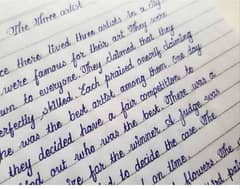 The three artist
ce there lived three artists in a city
were famous for their art. They were
wn to everyone. They claimed that they
erfectly skilled. Each praised onearly claiming
he was the best artist among them. One day
they decided have a fair competition to
d out who was the best. There was a
ize for the winner. A judge was
d to decide the case. The
on time.
flowers. The